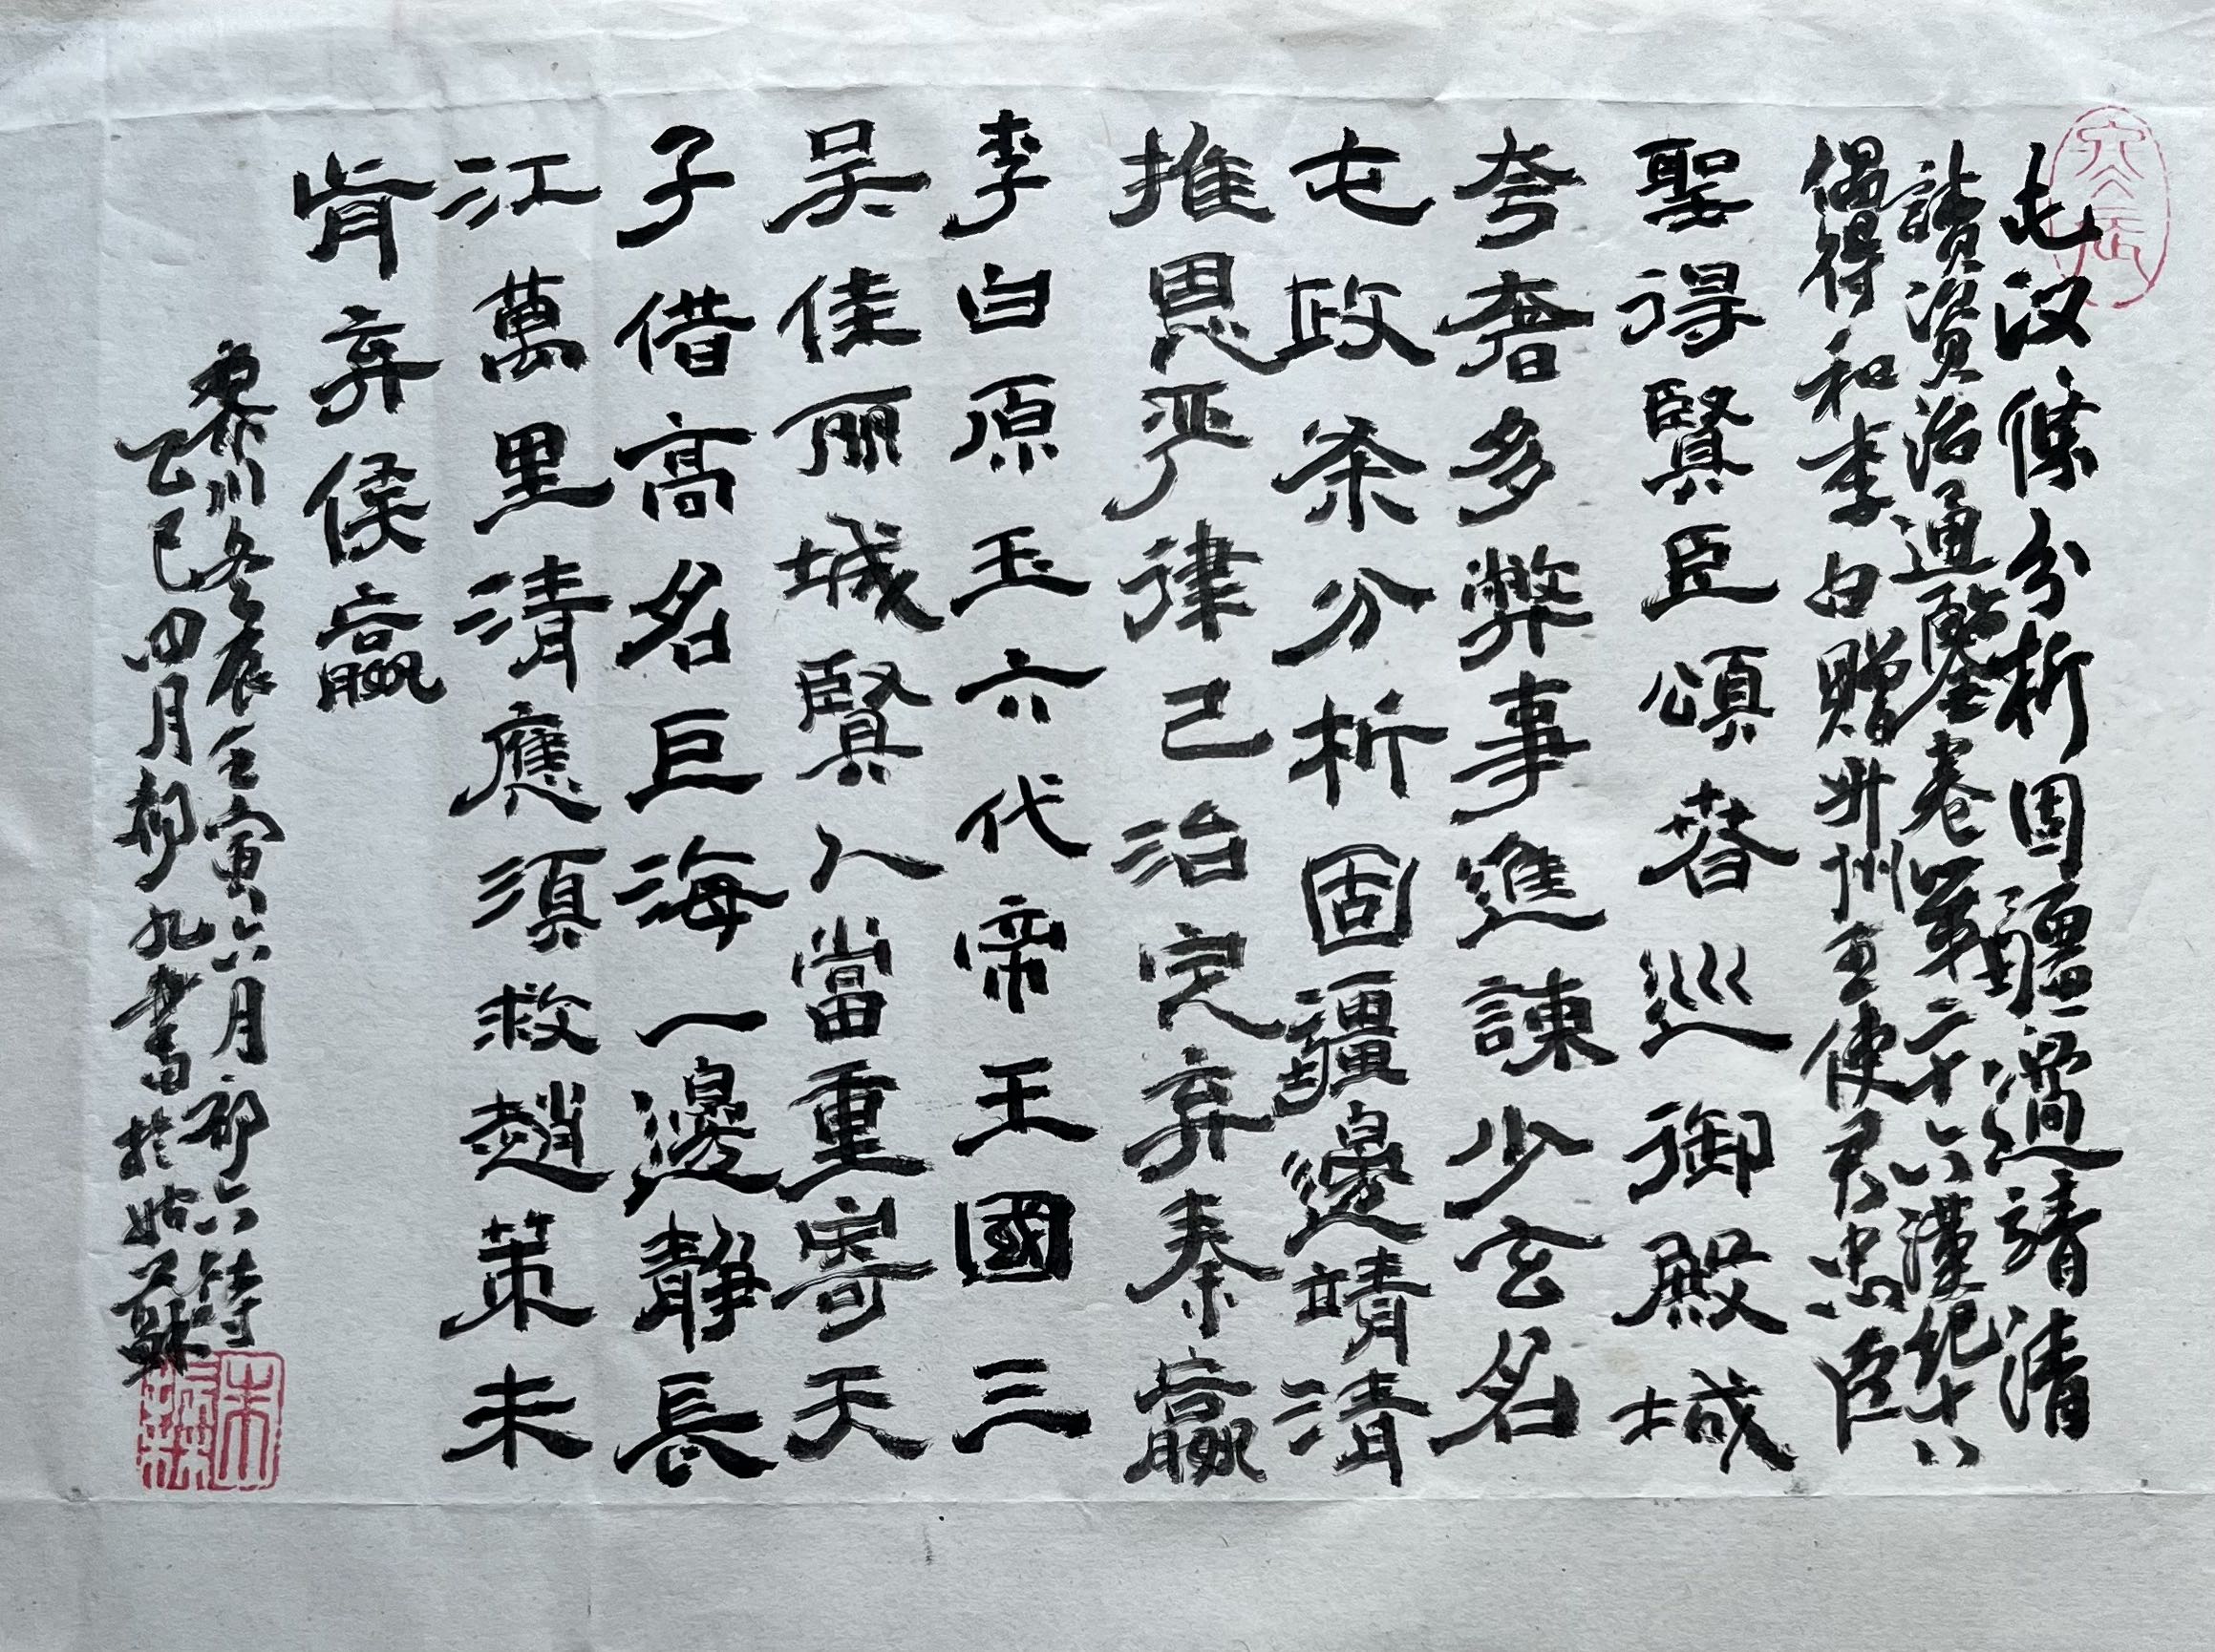 屯汉條分析固疆邊靖清
讀资治通鑒卷第二十六漢纪十八
偶得和李白贈昇州王使君忠臣
聖得賢臣頌昚巡御殿城
夸奢多弊事進諫少玄名
屯政条分析固疆邊靖清
推恩严律己治完弃秦嬴
李白原玉六代帝王國三
吴佳丽城賢人當重寄天
子借高名巨海一邊静長
江萬里清應須救趙策未
肯弃侯嬴
黎川冬辰壬寅六月初六詩
乙巳四月初九書於姑蘇